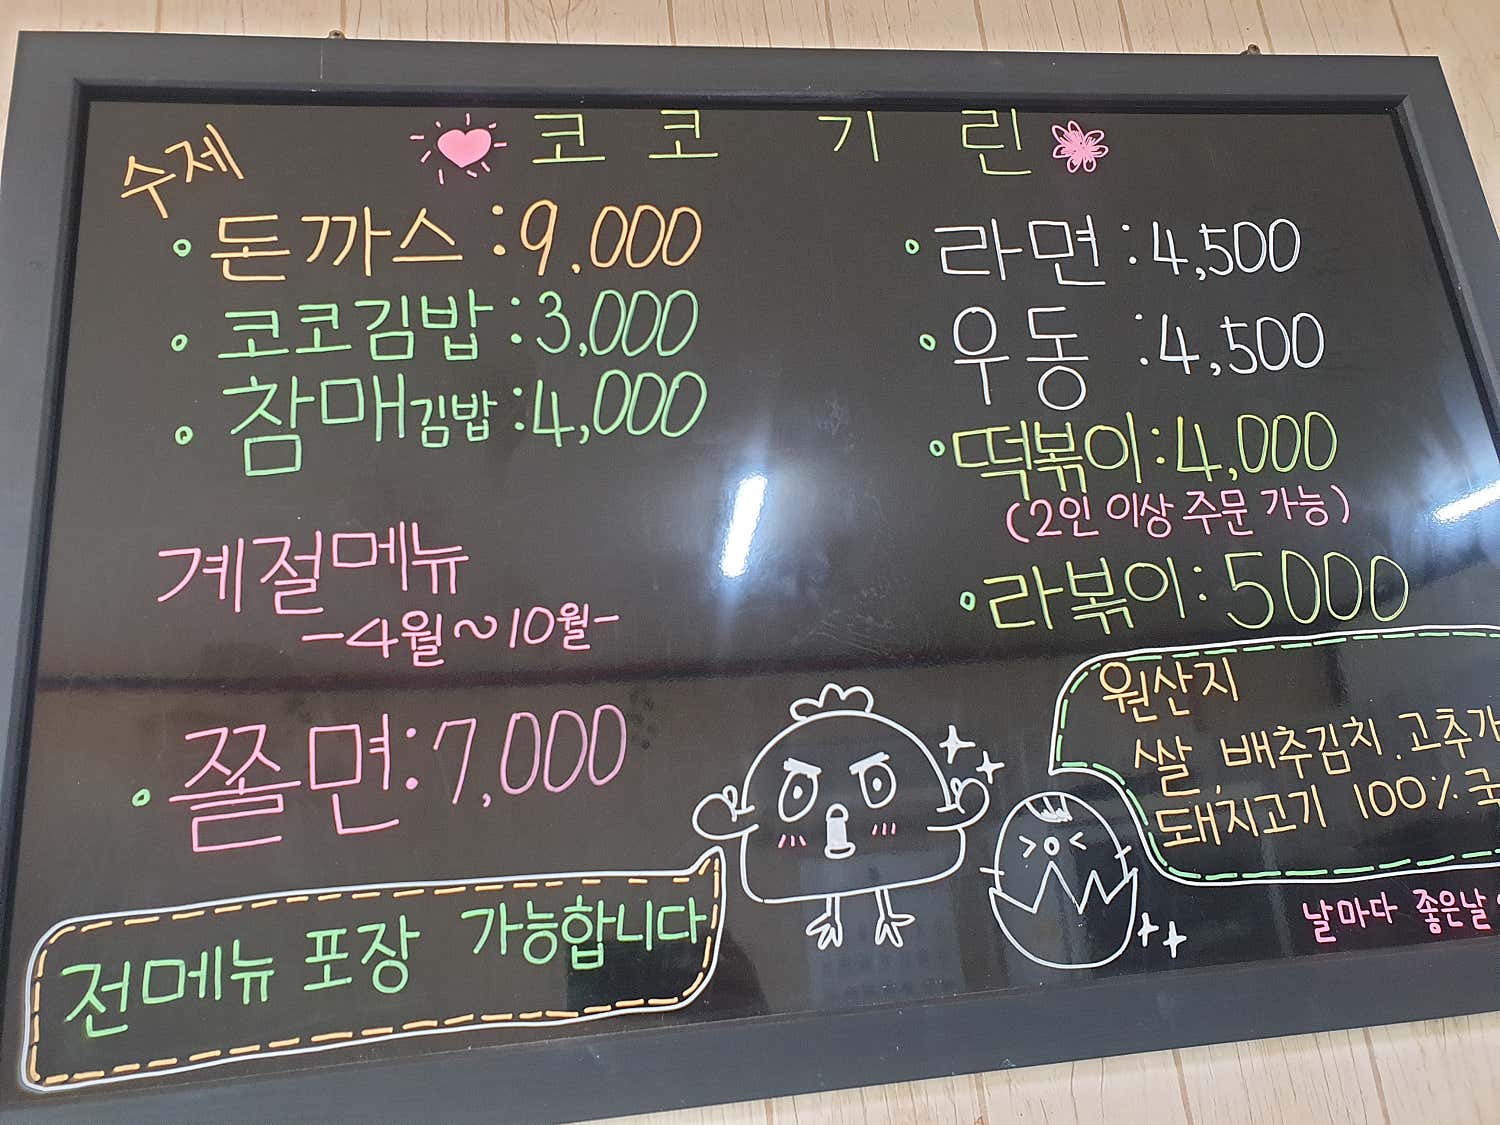 코코 기린
수제
돈까스 : 9.000
코코김밥 : 3,000
참매김밥 : 4,000
계절메뉴
-4월~10월-
쫄면 : 7,000
전메뉴 포장 가능합니다
라면 : 4,500
우동 : 4,500
떡볶이 : 4,000
(2인 이상 주문 가능)
라볶이 : 5000
원산지
쌀, 배추김치. 고추가
돼지고기 100% 국
날마다 좋은날